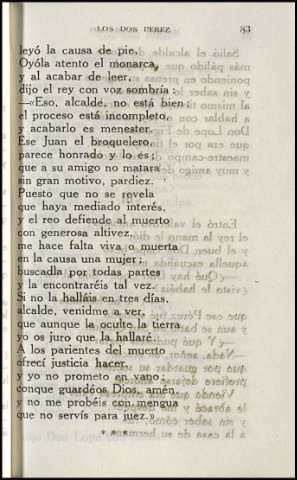 LOS DOS PEREZ 83
leyó la causa de pie.
Oyóla atento el monarca,
y al acabar de leer,
dijo el rey con voz sombría:
—«Eso, alcalde, no está bien:
el proceso está incompleto,
y acabarlo es menester.
Ese Juan el broquelero,
parece honrado y lo es;
que a su amigo no matara
sin gran motivo, pardiez.
Puesto que no se revela
que haya mediado interés,
y el reo defiende al muerto
con generosa altivez,
me hace falta viva o muerta
en la causa una mujer;
buscadla por todas partes
y la encontraréis tal vez.
Si no la halláis en tres días,
alcalde, venidme a ver,
que aunque la oculte la tierra
yo os juro que la hallaré.
A los parientes del muerto
ofrecí justicia hacer,
y yo no prometo en vano,
conque guardéos Dios, amén,
y no me probéis con mengua
que no servís para juez.»
* * *